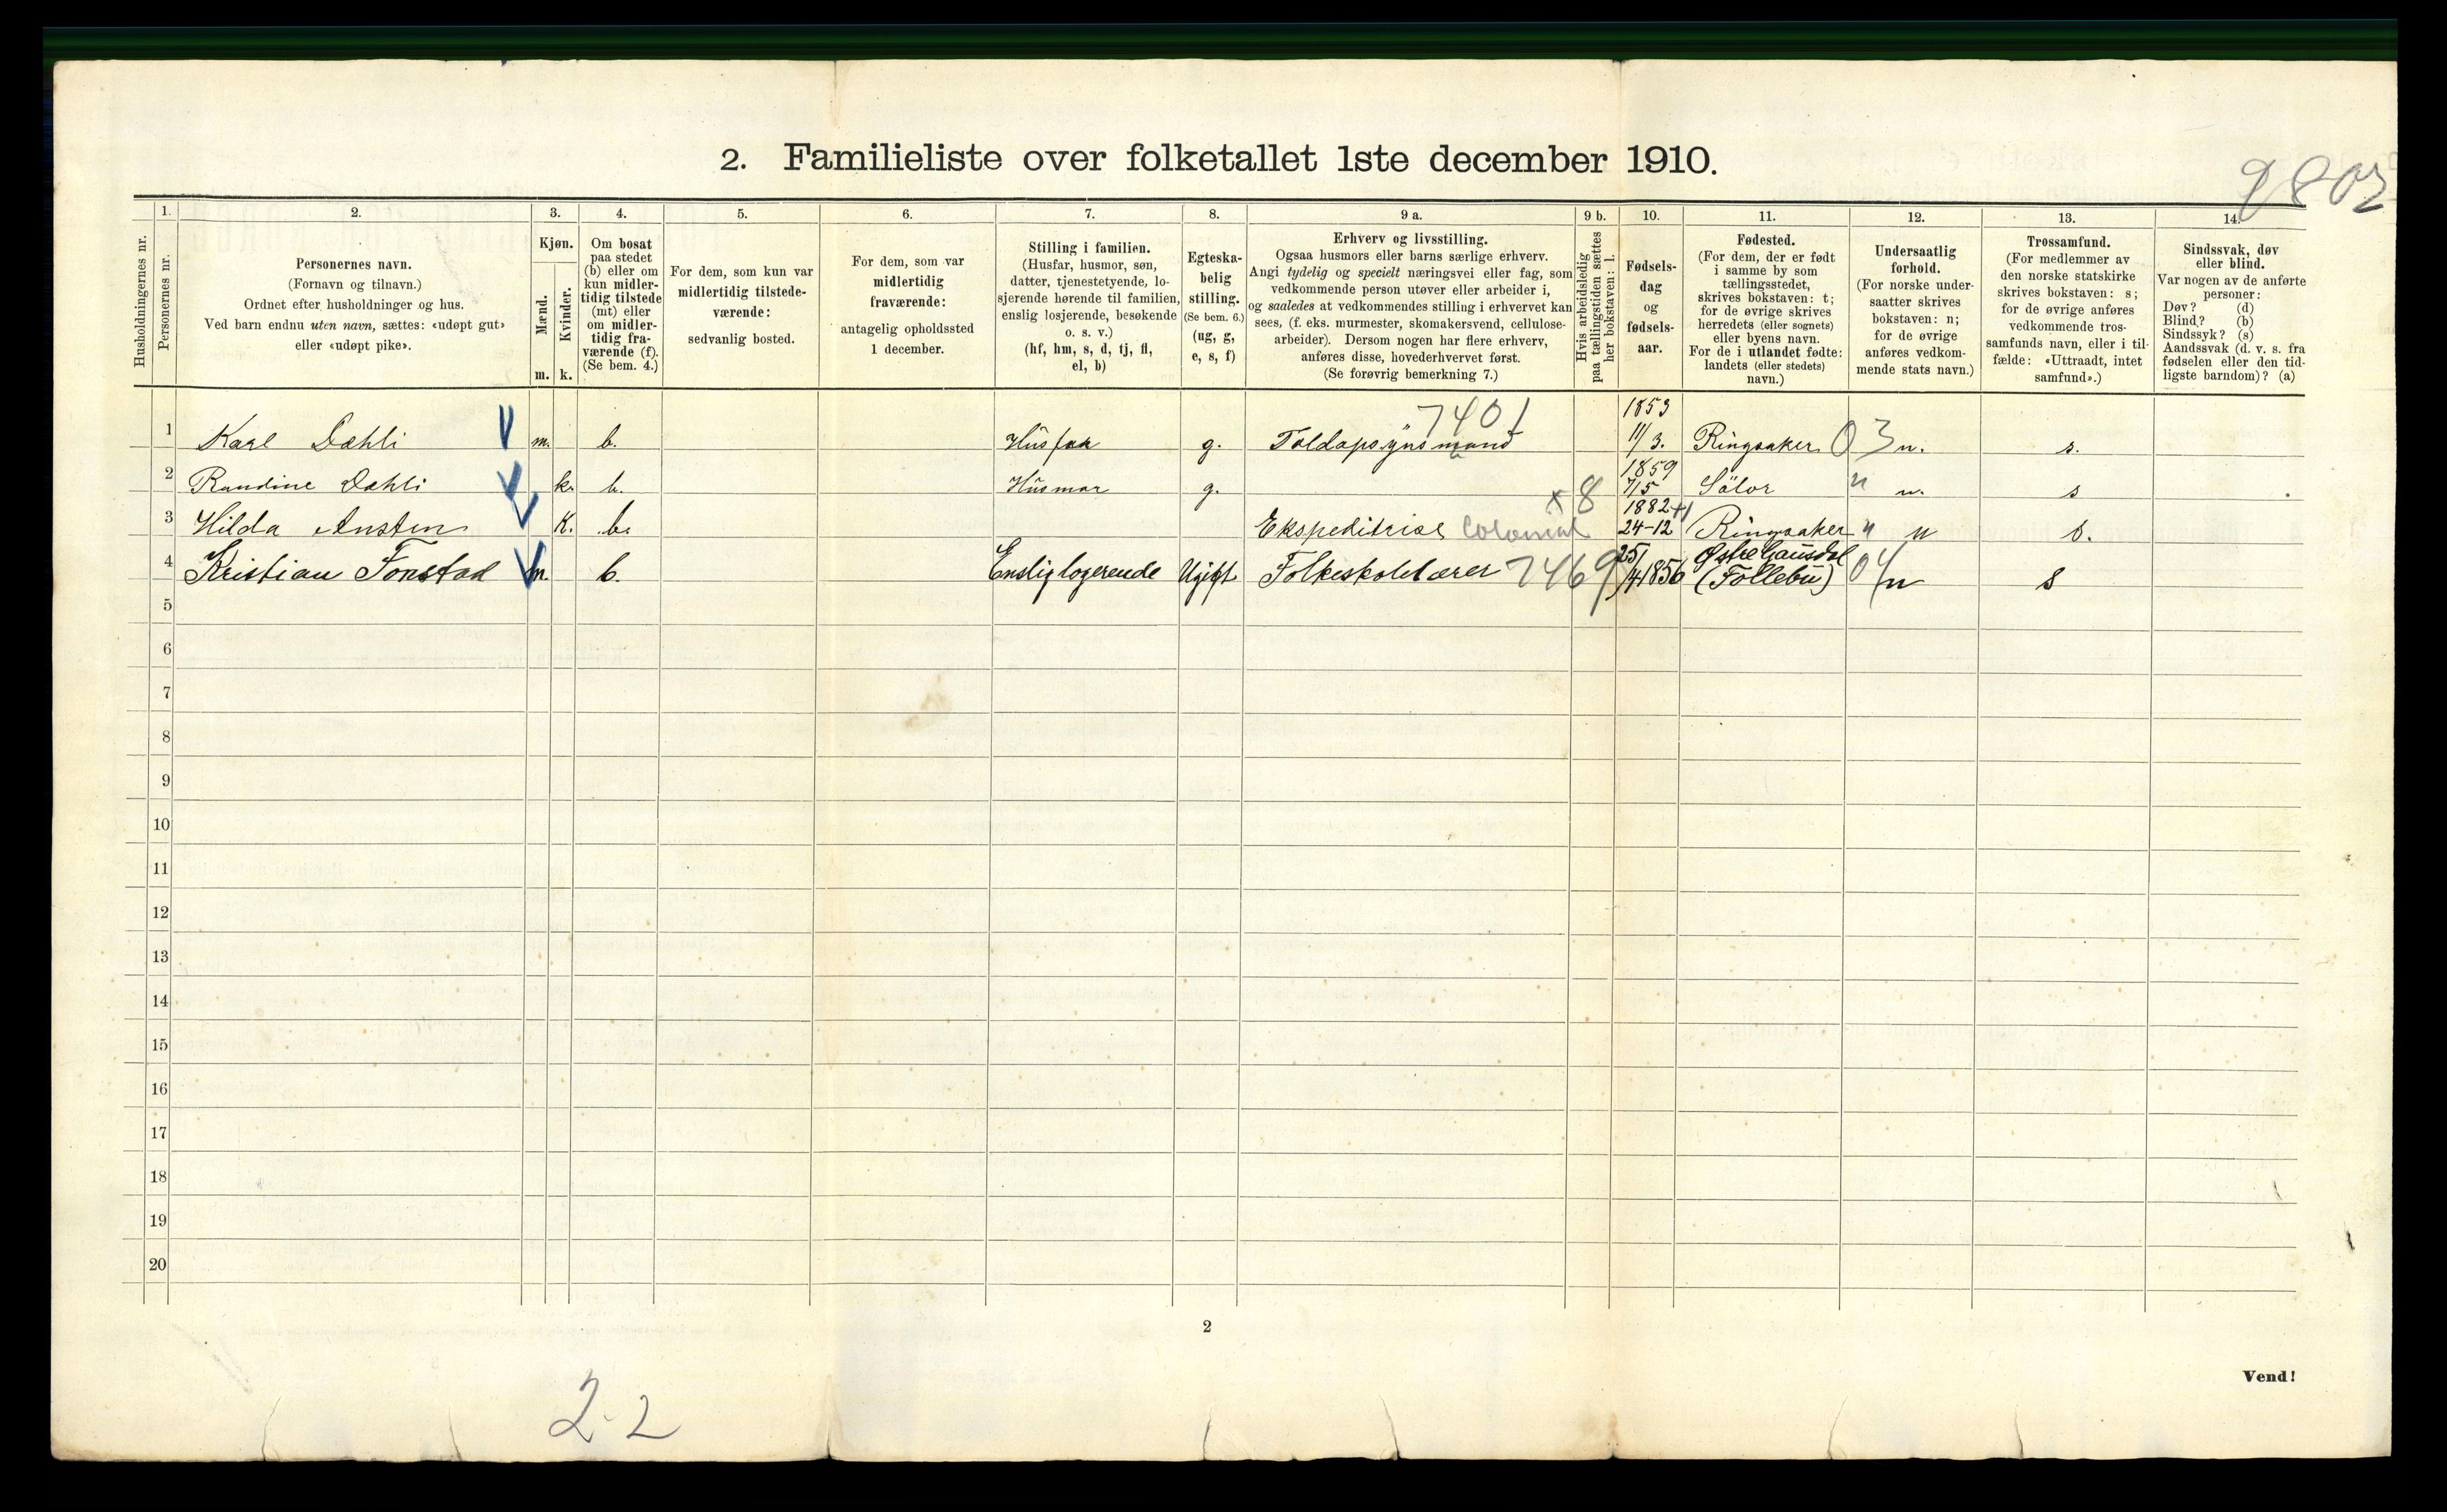 2. Familieliste over folketallet 1ste december 1910.
9803
Husholdningernes nr.
1.
Personernes nr.
2.
Personernes navn.
(Fornavn og tilnavn.)
Ordnet efter husholdninger og hus.
Ved barn endnu uten navn, sættes: «udøpt gut»
eller «udøpt pike».
3.
Kjøn.
Mænd.
Kvinder.
m. k.
4.
Om bosat
paa stedet
(b) eller om
kun midler-
tidig tilstede
(mt) eller
om midler-
tidig fra-
værende (f).
(Se bem. 4.)
5.
For dem, som kun var
midlertidig tilstede-
værende:
sedvanlig bosted.
6.
For dem, som var
midlertidig
fraværende:
antagelig opholdssted
1 december.
7.
Stilling i familien.
(Husfar, husmor, søn,
datter, tjenestetyende, lo-
sjerende hørende til familien,
enslig losjerende, besøkende
o. s. v.)
(hf, hm, s, d, tj, fl,
el, b)
8.
Egteska-
belig
stilling.
(Se bem. 6.)
(ug, g,
e, s, f)
9 a.
Erhverv og livsstilling.
Ogsaa husmors eller barns særlige erhverv.
Angi tydelig og specielt næringsvei eller fag, som
vedkommende person utøver eller arbeider i,
og saaledes at vedkommendes stilling i erhvervet kan
sees, (f. eks. murmester, skomakersvend, cellulose-
arbeider). Dersom nogen har flere erhverv,
anføres disse, hovederhvervet først.
(Se forøvrig bemerkning 7.)
9 b.
Hvis arbeidsledig
paa tællingstiden sættes
her bokstaven: l.
10.
Fødsels-
dag
og
fødsels-
aar.
11.
Fødested.
(For dem, der er født
i samme by som
tællingsstedet,
skrives bokstaven: t;
for de øvrige skrives
herredets (eller sognets)
eller byens navn.
For de i utlandet fødte:
landets (eller stedets)
navn.)
12.
Undersaatlig
forhold.
(For norske under-
saatter skrives
bokstaven: n;
for de øvrige
anføres vedkom-
mende stats navn.)
13.
Trossamfund.
(For medlemmer av
den norske statskirke
skrives bokstaven: s;
for de øvrige anføres
vedkommende tros-
samfunds navn, eller i til-
fælde: «Uttraadt, intet
samfund».)
14.
Sindssvak, døv
eller blind.
Var nogen av de anførte
personer:
Døv? (d)
Blind? (b)
Sindssyk? (s)
Aandssvak (d. v. s. fra
fødselen eller den tid-
ligste barndom)? (a)
7401 1853
1 Karl Dæhli m. b. Husfar g. Toldopsynsmand 11/3. Ringsaker 03 n. s.
1859
2 Randine Dæhli k. b. Husmor g. 7/5 Sölør " n. s
x 8 1882
3 Hilda Austen K. b. Ekspeditrise Colonial 24-12 Ringsaker " n s.
4 Kristian Fonstad m. b. Enslig logerende Ugift Folkeskolelærer 7469 25/4 1856 Østre Gausdal (Follebu) 04 n s
5
6
7
8
9
10
11
12
13
14
15
16
17
18
19
20
2
Vend!
2-2